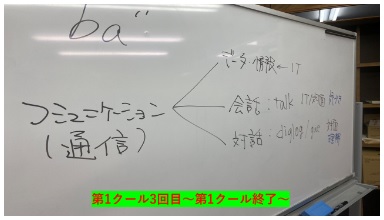 ba"
データ・情報←IT
コミュニケーション
(通信)
会話:talk
対話:dialog
第1クール3回目～第1クール終了～